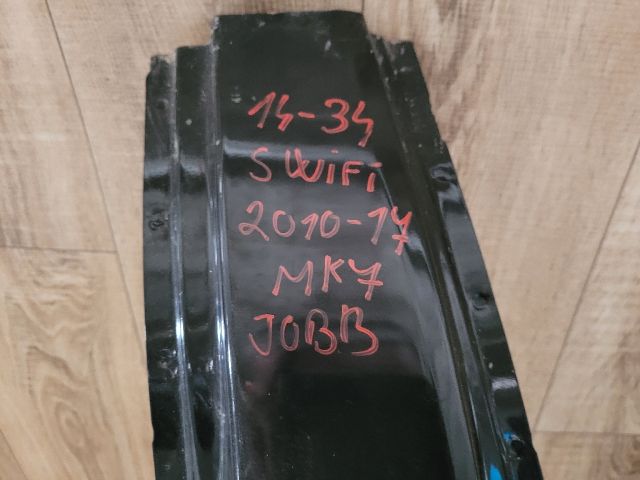 14-34
SWiFi
2010-17
MK7
JOBB